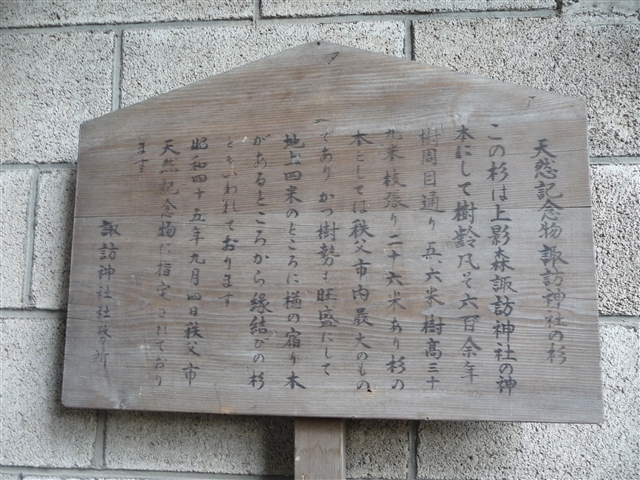 天然記念物 諏訪神社の杉
この杉は上影森諏訪神社の神
木にして樹齢凡そ六百余年
樹周目通り五、六米樹高三十
九米枝張り二十六米あり杉の
木としては秩父市内最大のもの
であり かつ樹勢も旺盛にして
地上四米のところに樋の宿り木
があるところから縁結びの杉
ともいわれております
昭和四十五年九月四日秩父市
天然記念物に指定されており
ます
諏訪神社社務所